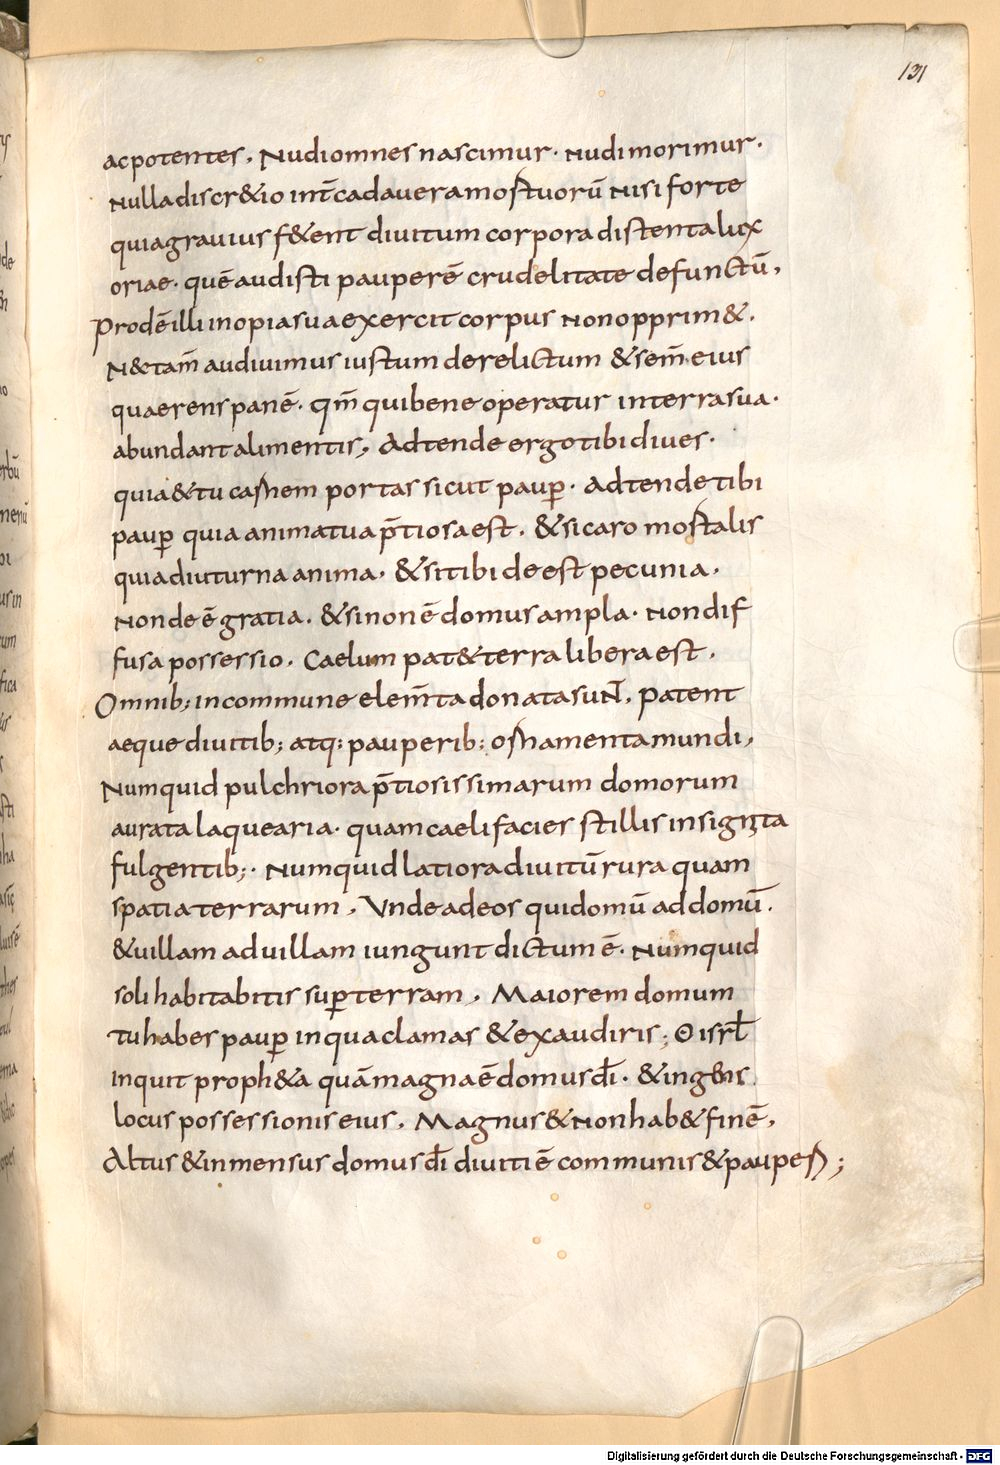 131
ac potentes. Nudi omnes nascimur. nudi morimur.
Nulla discr&io int̄ cadavera mortuorū nisi forte
quia gravius f&ent divitum corpora distenta lux
oriae. quē audisti pauperē crudelitate defunctū,
Prodē illi inopia sua exercit corpus non opprim&.
N& tam̄ audivimus iustum derelictum & sem̄ eius
quaerens panē. qm̄ qui bene operatur in terra sua.
abundant alimentis, Adtende ergo tibi dives.
quia & tu carnem portas sicut paup̄. Adtende tibi
paup̄ quia anima tua p̄tiosa est. & si caro mortalis
quia diuturna anima. & si tibi deest pecunia,
Non deē gratia. & si non ē domus ampla. non dif
fusa possessio. Caelum pat& terra libera est.
Omnib; in commune elem̄ta donata sunt̄. Patent
aeque divitib; atq: pauperib; ornamenta mundi,
Numquid pulchriora p̄tiosissimarum domorum
aurata laquearia. quam caeli facies stillis insignita
fulgentib;. Numquid latiora divitū rura quam
spatia terrarum. Unde ad eos qui domū ad domū.
& villam ad villam iungunt dictum ē. Numquid
soli habitabitis sup̄ terram. Maiorem domum
tu habes paup̄ in qua clamas & exaudiris; O isrl̄
inquit proph&a quā magna ē domus dī. & ingens
locus possessionis eius. Magnus & non hab& finē,
Altus & inmensus domus dī diviti ē communis & pauper;
Digitalisierung gefördert durch die Deutsche Forschungsgemeinschaft - DFG